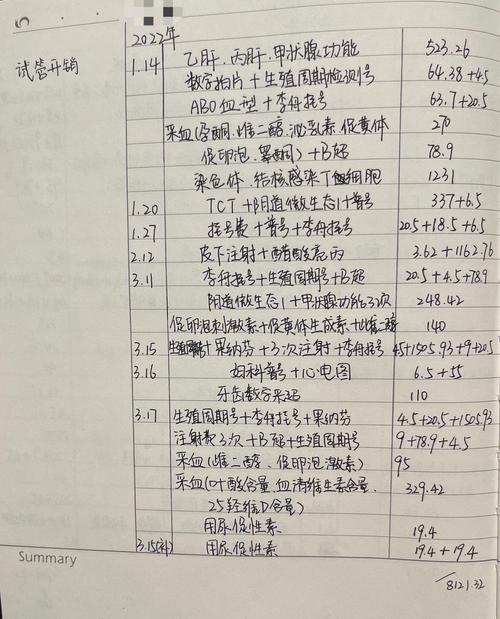 2022年
试管开销
1.14 乙肝、丙肝、甲状腺功能 523.26
数字拍片+生殖周期检测号 64.38+4.5
ABO血型+李舟挂号 63.7+20.5
采血(孕酮、雌二醇、泌乳素、促黄体 270
促卵泡、睾酮)+B超 78.9
染色体、结核感染T细胞 1231
1.20 TCT+阴道微生态1+普号 337+6.5
1.27 挂号费+普号+李舟挂号 20.5+18.5+6.5
2.12 皮下注射+醋酸亮丙 3.62+1162.76
3.11 李舟挂号+生殖周期号+B超 20.5+4.5+78.9
阴道微生态1+甲状腺功能3次 248.42
促卵泡刺激素+促黄体生成素+雌二醇 140
3.15 生殖周期+果纳芬+3次注射+李舟挂号 45+1505.93+9+20.5
3.16 妇科普号+心电图 6.5+55
牙齿数字采码 110
3.17 生殖周期号+李舟挂号+果纳芬 4.5+20.5+1505.93
注射费3次+B超+生殖周期号 9+78.9+4.5
采血(雌二醇、促卵泡激素) 95
采血(叶酸含量、血清维生素含量、 329.42
25羟维D含量)
用尿促性素 19.4
3.15(补) 用尿促性素 19.4+19.4
Summary
8121.32